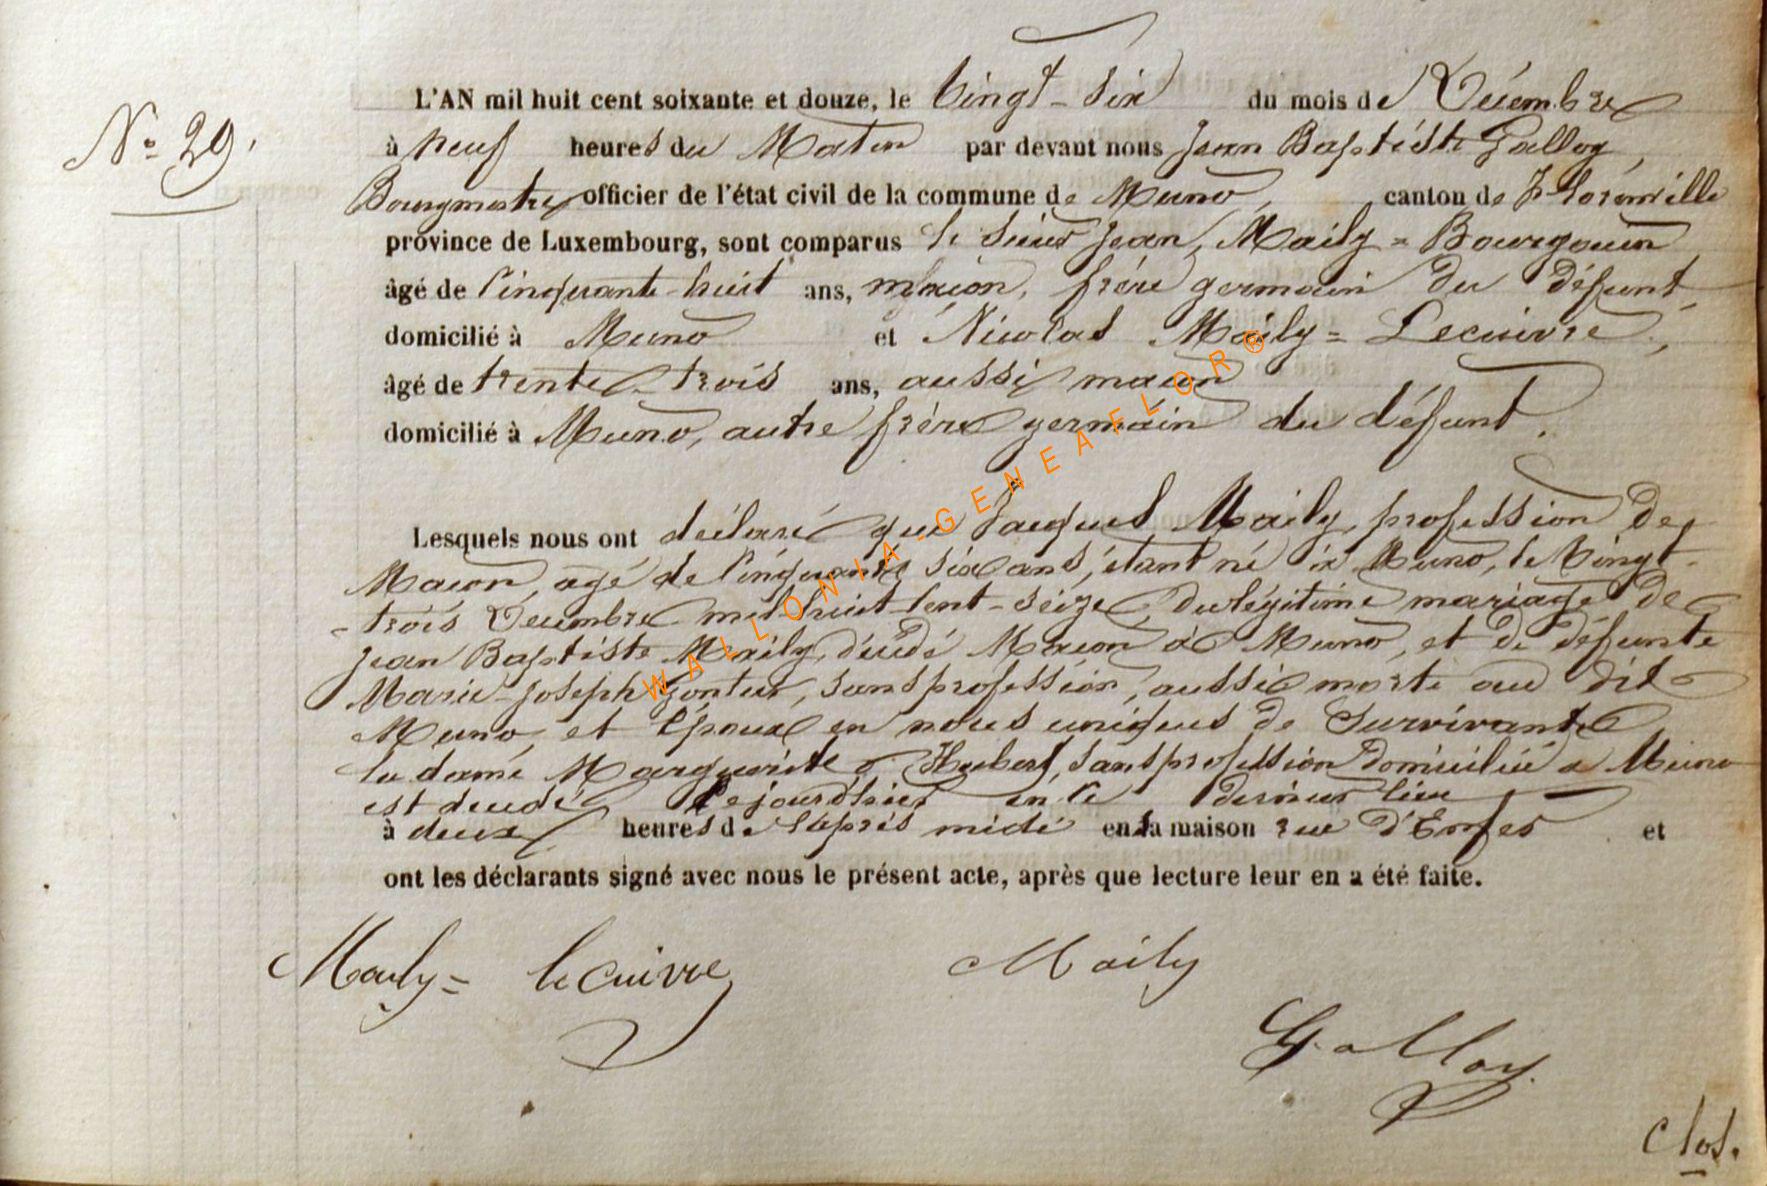 L'AN mil huit cent soixante et douze, le Vingt-Six du mois de Décembre
N° 29. à neuf heures du Matin par devant nous Jean Baptiste Galloy,
Bourgmestre, officier de l'état civil de la commune de Muno, canton de Florenville
province de Luxembourg, sont comparus le Sieur Jean, Maily = Bourgouin
âgé de Cinquante-huit ans, maçon, frère germain du Défunt,
domicilié à Muno et Nicolas Maily = Lecuivre,
âgé de trente-trois ans, aussi maçon
domicilié à Muno, autre frère germain du défunt.
Lesquels nous ont déclaré que Jacques Maily, profession de
Macon, agé de Cinquante six ans, étant né à Muno, le Vingt-
-trois Décembre mil-huit-Cent-seize, du légitime mariage de
Jean Baptiste Maily, décédé Macon à Muno, et de défunte
Marie-Joseph sans profession, aussi morte au dit
Muno, et Epoux en noces uniques de Survivante
la dame Marguerite Hubert, sans profession domiciliée à Muno
est décédé Ce jourd'hier en ce dernier lieu
à deux heures de l'après midi en sa maison rue d'Enfer et
ont les déclarants signé avec nous le présent acte, après que lecture leur en a été faite.
Maily = lecuivre Maily
Galloy
Clos.
WALLONIA-GENEAFLOR®